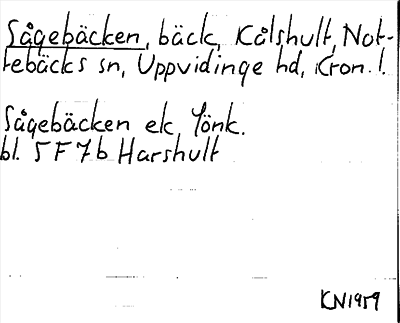 Sågebäcken, bäck, Kålshult, Not-
tebäcks sn, Uppvidinge hd, Kron. l.
Sågebäcken ek, Jönk.
bl. 5F7b Harshult
KN1959